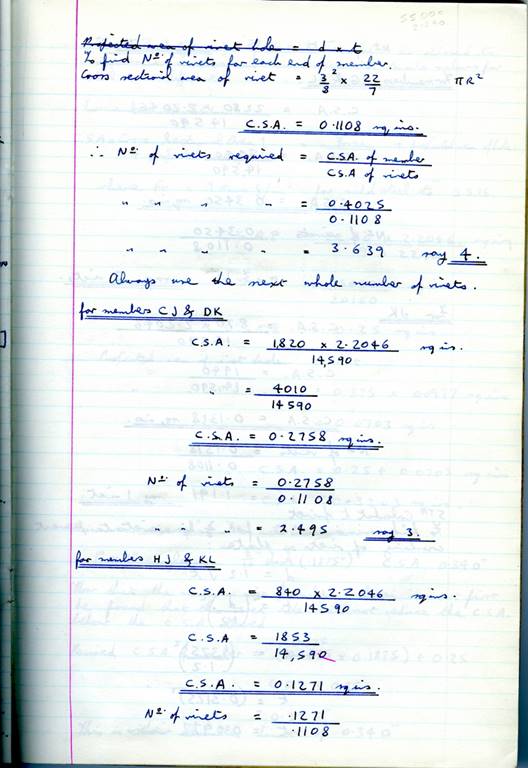 Projected area of rivet hole = d × t
To find Nº of rivets for each end of member.
Cross sectional area of rivet = 3/8² × 22/7 πR²
C.S.A. = 0.1108 sq ins.
∴ Nº of rivets required = C.S.A. of member / C.S.A of rivets
" " " " = 0.4025 / 0.1108
" " " " = 3.639 say 4.
Always use the next whole number of rivets.
for members CJ & DK
C.S.A. = 1,820 × 2.2046 / 14,590 sq ins.
" = 4010 / 14590
C.S.A. = 0.2758 sq ins.
Nº of rivets = 0.2758 / 0.1108
" " " = 2.495 say 3.
for members HJ & KL
C.S.A. = 840 × 2.2046 / 14590 sq ins.
C.S.A = 1853 / 14,590
C.S.A. = 0.1271 sq ins.
Nº of rivets = .1271 / .1108